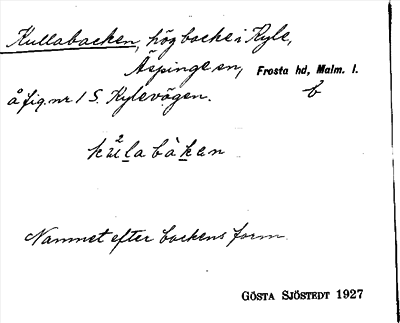 Kullabacken, hög backe i Kyle,
Äspinge sn, Frosta hd, Malm. l.
å fig. nr 1 S. Kylevägen. b
kúlabàkan
Namnet efter backens form.
GÖSTA SJÖSTEDT 1927